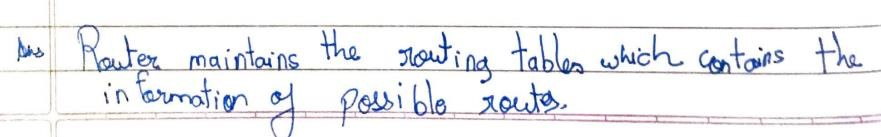 Ans Router maintains the routing tables which contains the
information of possible routes.